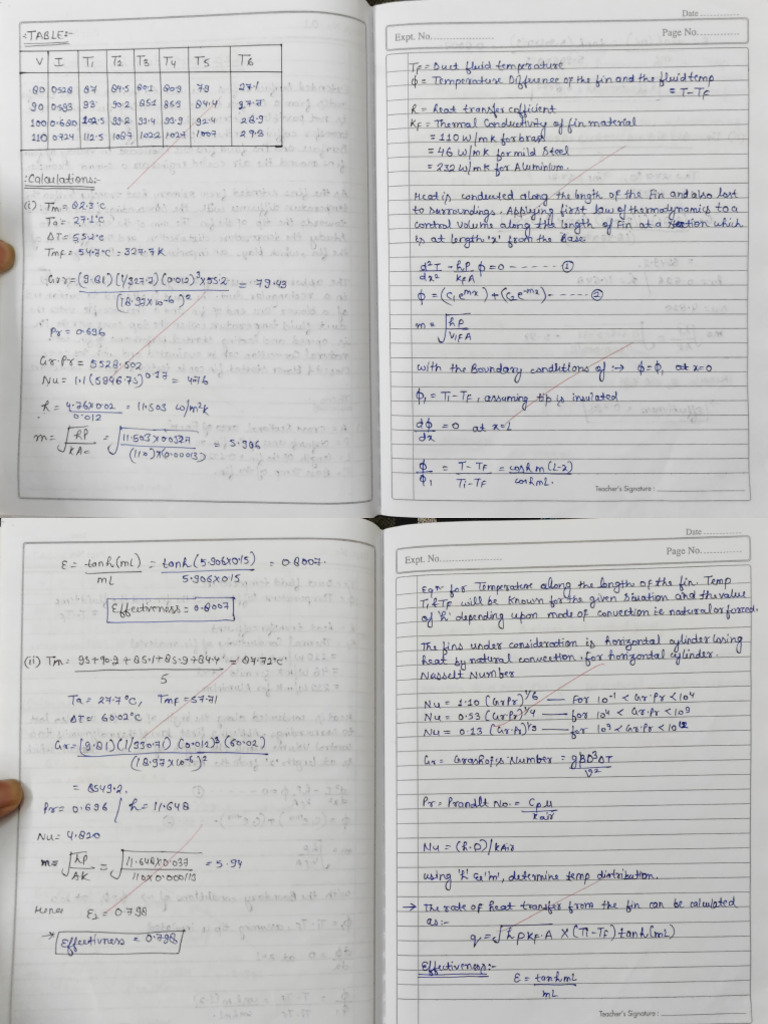 TABLE:-
V I T1 T2 T3 T4 T5 T6
80 0.528 87 84.5 80.1 80.9 79 27.1
90 0.593 93 90.2 85.1 85.9 84.4 27.7
100 0.680 102.5 99.2 93.9 92.4 28.9
110 0.724 112.5 108.7 102.2 102.9 100.7 29.3
Calculations:-
(i) Tm = 82.3°C
Ta = 27.1°C
ΔT = 55.2°C
Tmf = 54.7°C = 327.7 K
Gr = (9.81)(1/327.7)(0.012)³×55.2 = 79.43
(18.97×10⁻⁶)²
Pr = 0.696
Gr.Pr = 5528.502
Nu = 1.1(5896.73)^0.17 = 4.76
h = 4.76×0.02 = 11.503 w/m²k
0.012
m = √hP = √11.503×0.0327 = 5.906
kAc (110)×(0.00013)
Date
Expt. No. Page No.
TF = Duct fluid temperature
Φ = Temperature Difference of the fin and the fluid temp
= T-TF
h = heat transfer cofficient
KF = Thermal Conductivity of fin material
= 110 W/mK for brass
= 46 W/mK for mild Steel
= 232 W/mK for Aluminium.
Heat is conducted along the length of the Fin and also lost
to surroundings. Applying first law of thermodynamics to a
control volume along the length of Fin at a section which
is at length 'x' from the Base
d²T - hP Φ = 0 ------ ①
dx² KFA
Φ = (C1e^mx) + (C2e^-mx) ------ ②
m = √hP
KFA
with the Boundary conditions of → Φ = Φ1 at x=0
Φ1 = T1-TF, assuming tip is insulated
dΦ = 0 at x=L
dx
Φ = T-TF = cosh m(L-x)
Φ1 T1-TF cosh mL.
Teacher's Signature :
ε = tanh(mL) = tanh(5.906×0.15) = 0.8007.
mL 5.906×0.15
Effectiveness = 0.8007
(ii) Tm = 93+90.2+85.1+85.9+84.4 = 87.72°C
5
Ta = 27.7°C, Tmf = 57.71
ΔT = 60.02°C
Gr = (9.81)(1/330.71)(0.012)³(60.02)
(18.97×10⁻⁶)²
= 8549.2.
Pr = 0.696 / h = 11.648
Nu = 4.820
m = √hP = √11.648×0.037 = 5.94
AK 110×0.000113
Hence ε2 = 0.798
→ Effectivness = 0.798
Date
Expt. No. Page No.
Eqn for Temperature along the lengths of the fin. Temp
T1 & TF will be known for the given situation and the value
of 'h' depending upon mode of convection ie natural or forced.
The fins under consideration is horizontal cylinder losing
heat by natural convection. for horizontal cylinder.
Nusselt Number
Nu = 1.10 (GrPr)^1/6 — For 10⁻¹ < Gr.Pr < 10⁴
Nu = 0.53 (GrPr)^1/4 — for 10⁴ < Gr.Pr < 10⁹
Nu = 0.13 (GrPr)^1/3 — for 10⁹ < Gr.Pr < 10¹²
Gr = Grashof's Number = gβD³ΔT
ν²
Pr = Prandlt No. = Cpμ
kair
Nu = (h.D)/kAir
using 'h' & 'm', determine temp distribution.
→ The rate of heat transfer from the fin can be calculated
as:-
q = √hPKF.A × (T1-TF) tanh(mL)
Effectiveness:-
ε = tanh mL
mL
Teacher's Signature :